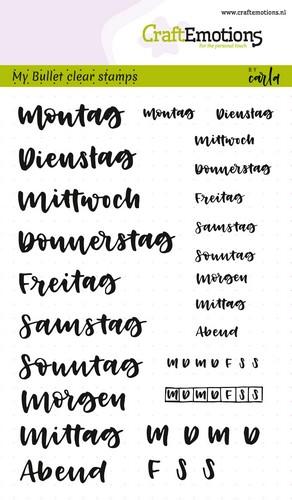 www.craftemotions.nl
CraftEmotions
For the personal touch
My Bullet clear stamps
BY carla
Montag
Dienstag
Mittwoch
Donnerstag
Freitag
Samstag
Sonntag
Morgen
Mittag
Abend
Montag Dienstag
Mittwoch
Donnerstag
Freitag
Samstag
Sonntag
Morgen
Mittag
Abend
M D M D F S S
M D M D F S S
M D M D
F S S